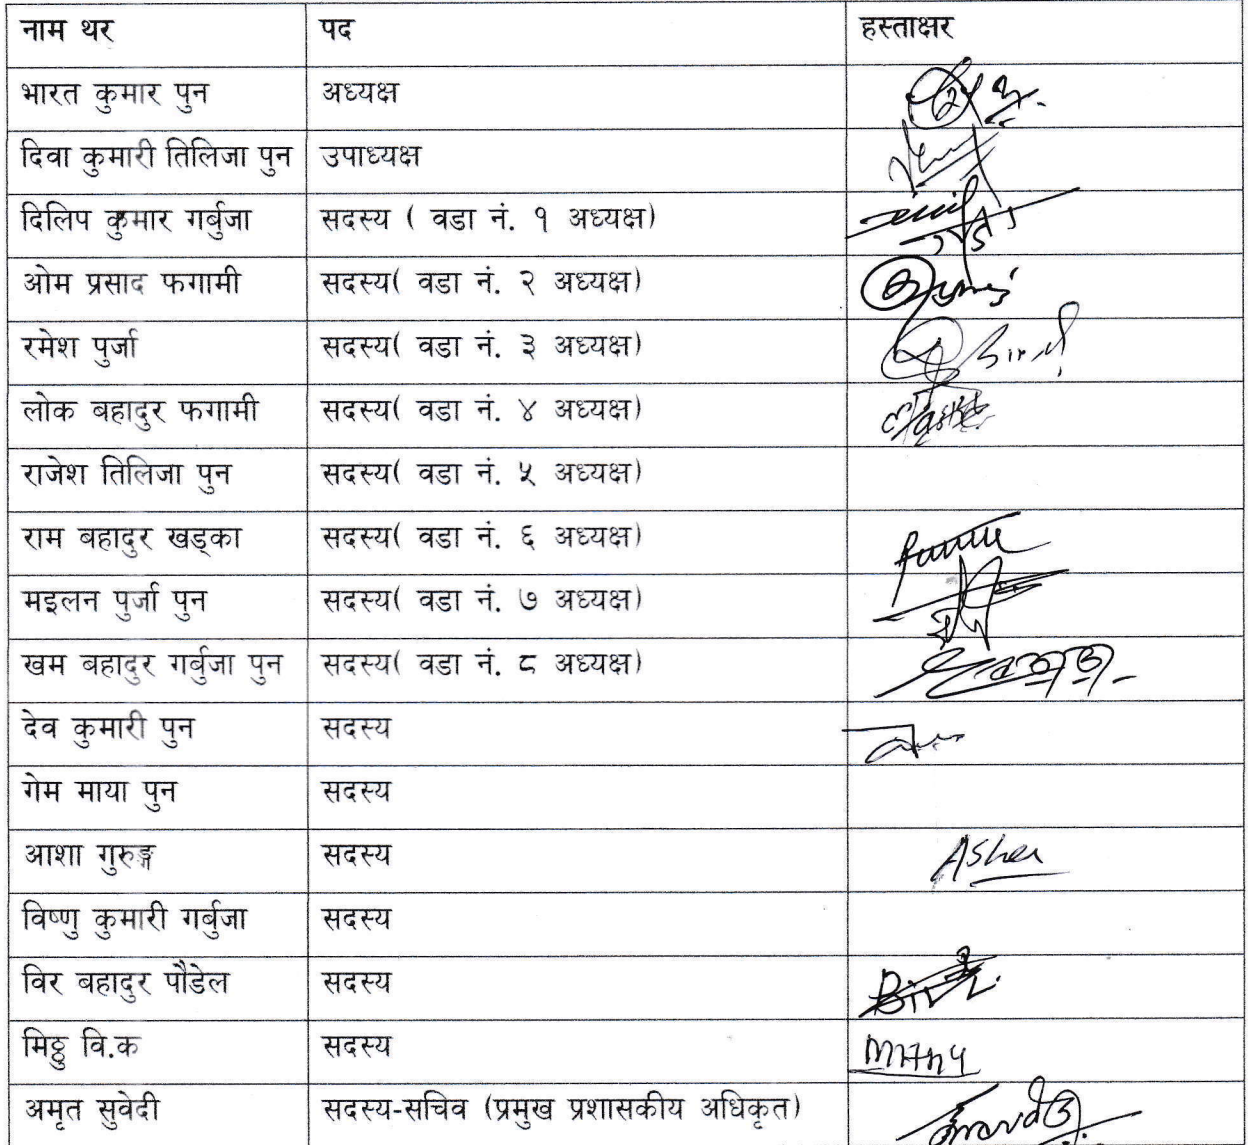 नाम थर पद हस्ताक्षर
भारत कुमार पुन अध्यक्ष
दिवा कुमारी तिलिजा पुन उपाध्यक्ष
दिलिप कुमार गर्बुजा सदस्य ( वडा नं. १ अध्यक्ष)
ओम प्रसाद फगामी सदस्य( वडा नं. २ अध्यक्ष)
रमेश पुर्जा सदस्य( वडा नं. ३ अध्यक्ष)
लोक बहादुर फगामी सदस्य( वडा नं. ४ अध्यक्ष)
राजेश तिलिजा पुन सदस्य( वडा नं. ५ अध्यक्ष)
राम बहादुर खड्का सदस्य( वडा नं. ६ अध्यक्ष)
मइलन पुर्जा पुन सदस्य( वडा नं. ७ अध्यक्ष)
खम बहादुर गर्बुजा पुन सदस्य( वडा नं. ८ अध्यक्ष)
देव कुमारी पुन सदस्य
गेम माया पुन सदस्य
आशा गुरुङ्ग सदस्य Asha
विष्णु कुमारी गर्बुजा सदस्य
विर बहादुर पौडेल सदस्य
मिठ्ठु वि.क सदस्य
अमृत सुवेदी सदस्य-सचिव (प्रमुख प्रशासकीय अधिकृत)